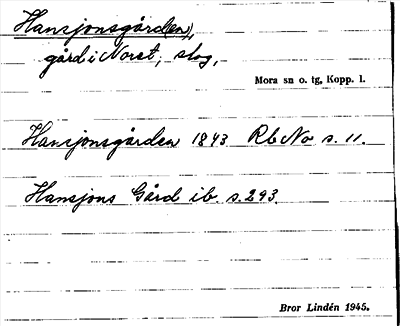 Hansjonsgård(en),
gård i Noret, slog,
Mora sn o. tg, Kopp. l.
Hansjonsgården 1843 RbNo s. 11.
Hansjons Gård ib. s. 293.
Bror Lindén 1945.